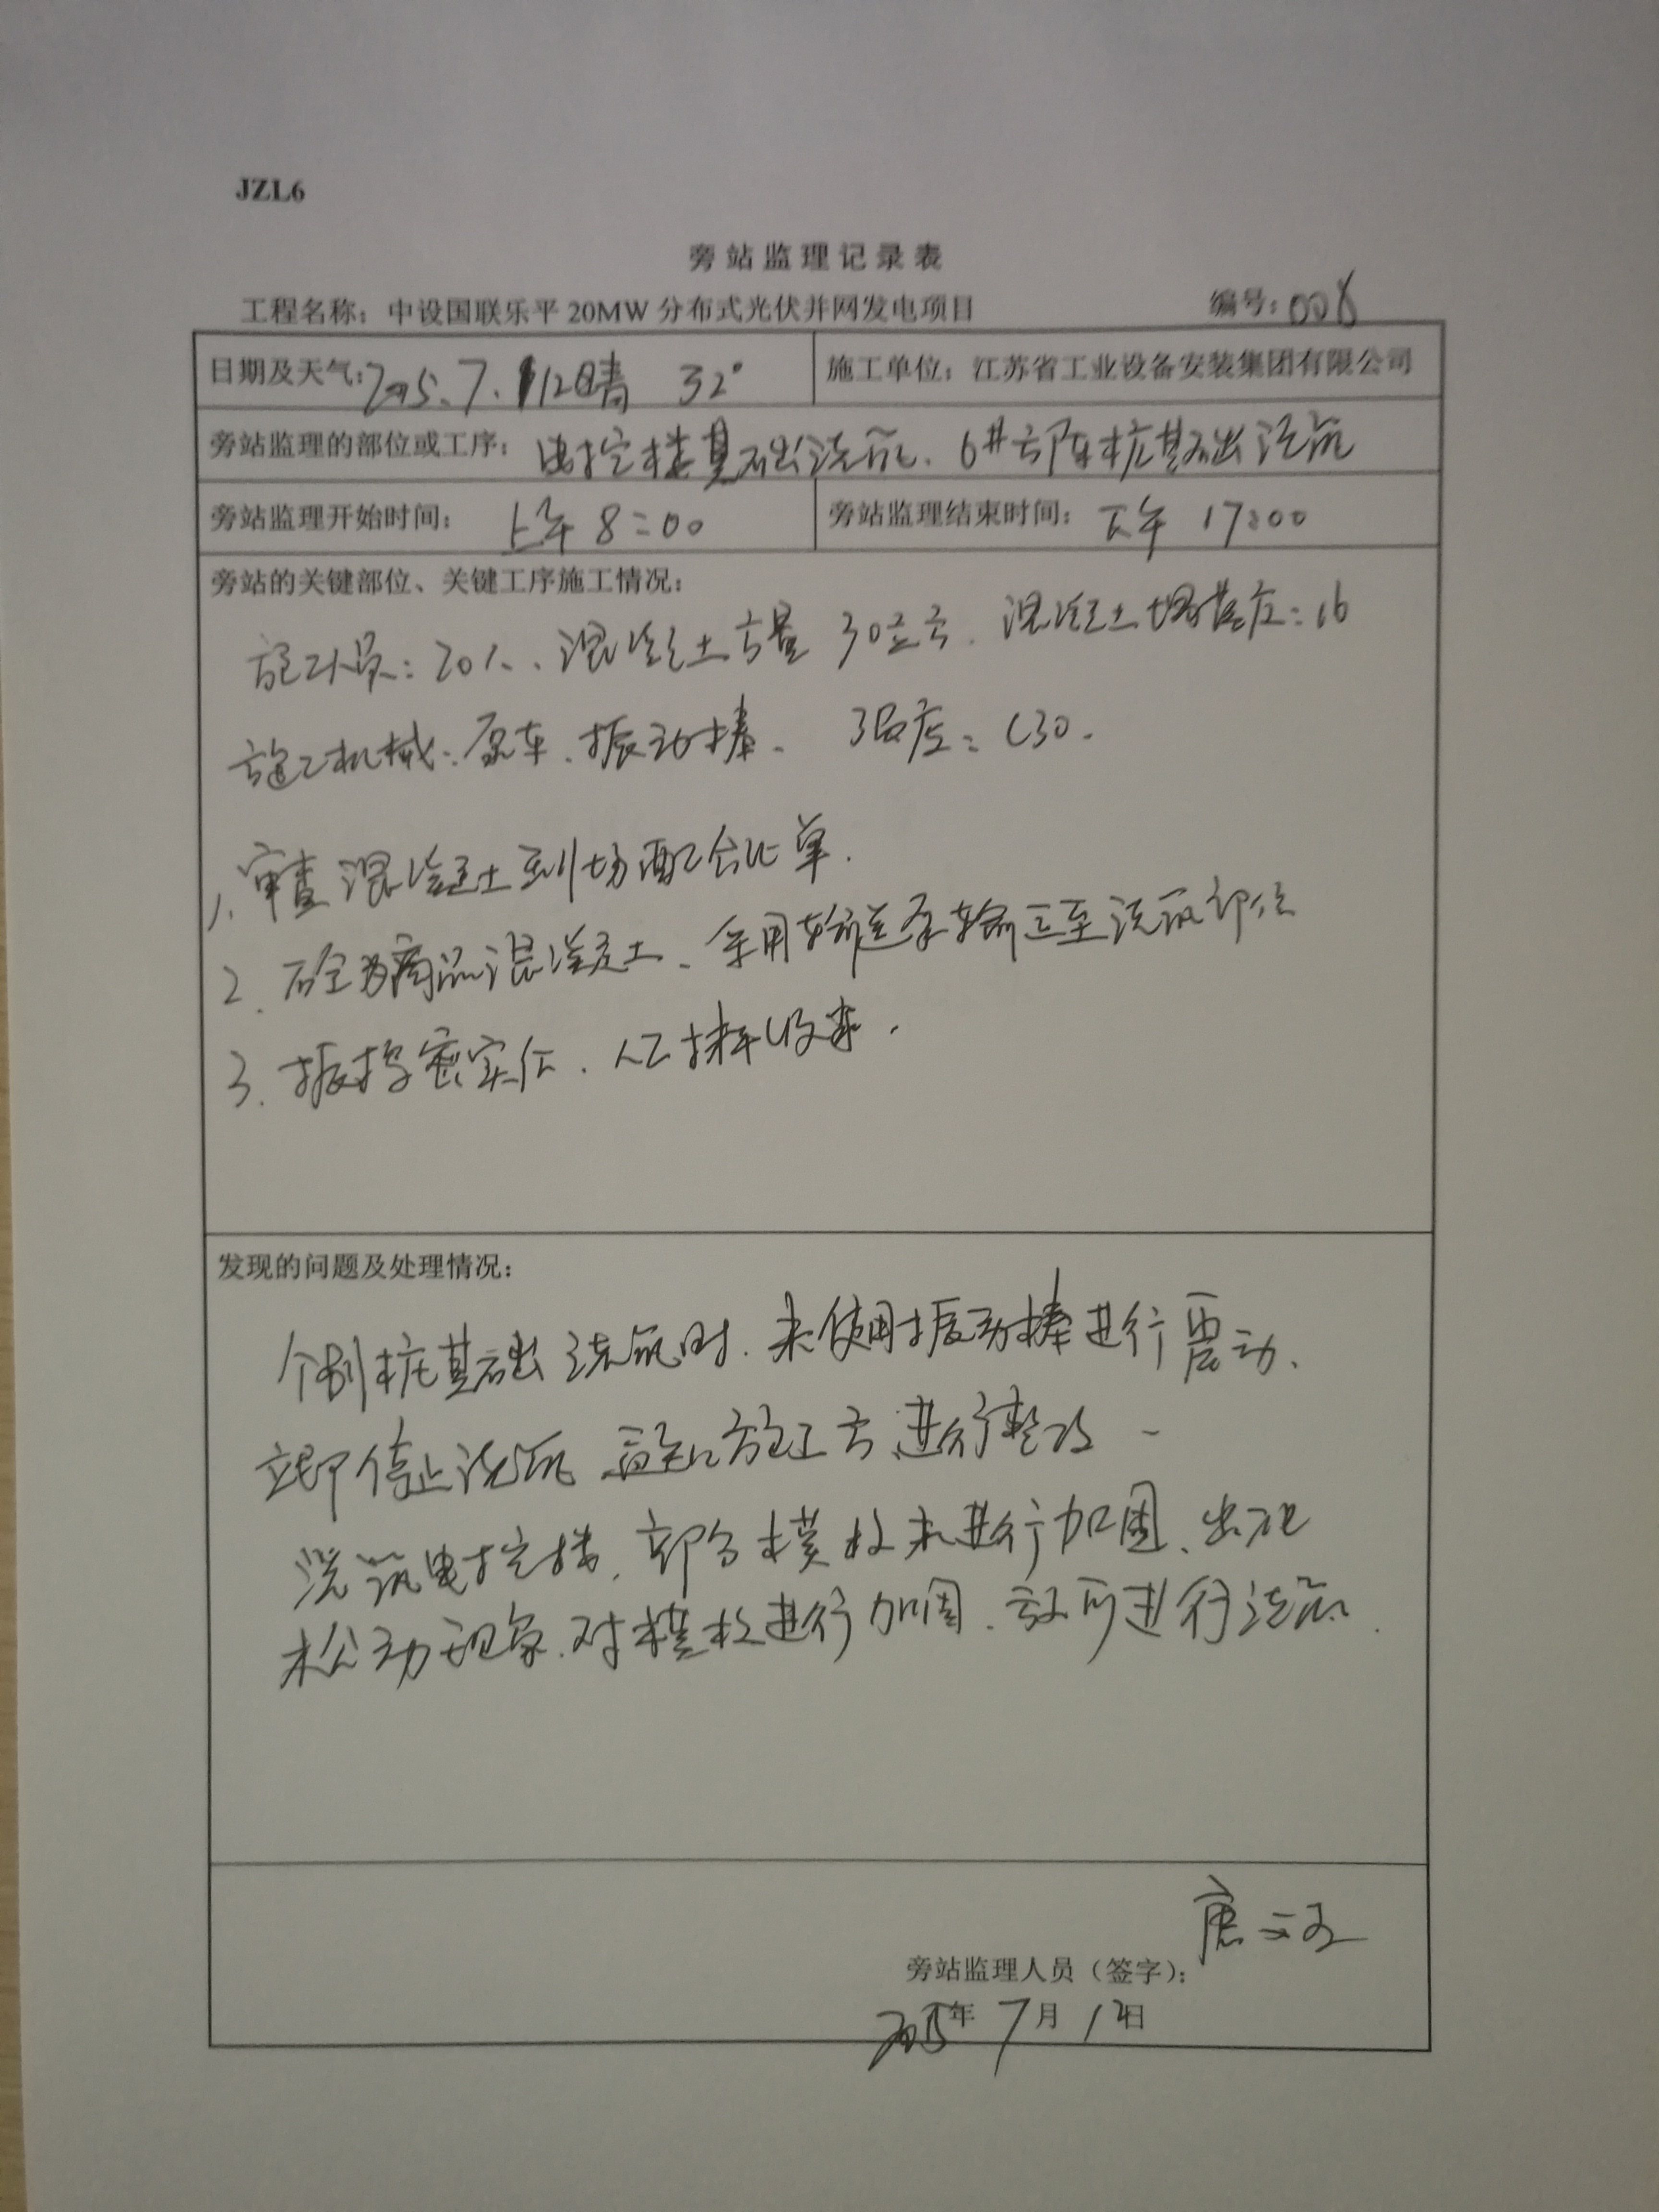 JZL6
旁站监理记录表
工程名称：中设国联乐平20MW分布式光伏并网发电项目 编号：008
日期及天气：2015.7.12晴 32° 施工单位：江苏省工业设备安装集团有限公司
旁站监理的部位或工序：电控楼基础浇筑、6#方阵桩基础浇筑
旁站监理开始时间：上午 8:00 旁站监理结束时间：下午 17:00
旁站的关键部位、关键工序施工情况：
施工人员：20人、混凝土方量 30立方、混凝土塌落度：16
施工机械：泵车、振动棒、 强度：C30.
1、审查混凝土到场配合比单.
2、砼为商品混凝土、采用输送泵输送至浇筑部位
3、振捣密实后、人工抹平收浆.
发现的问题及处理情况：
个别桩基础浇筑时、未使用振动棒进行震动、
立即停止浇筑 施工方进行整改
浇筑电控楼、部分模板未进行加固、出现
松动现象.对模板进行加固、方可进行浇筑.
旁站监理人员（签字）：唐
2015年7月12日